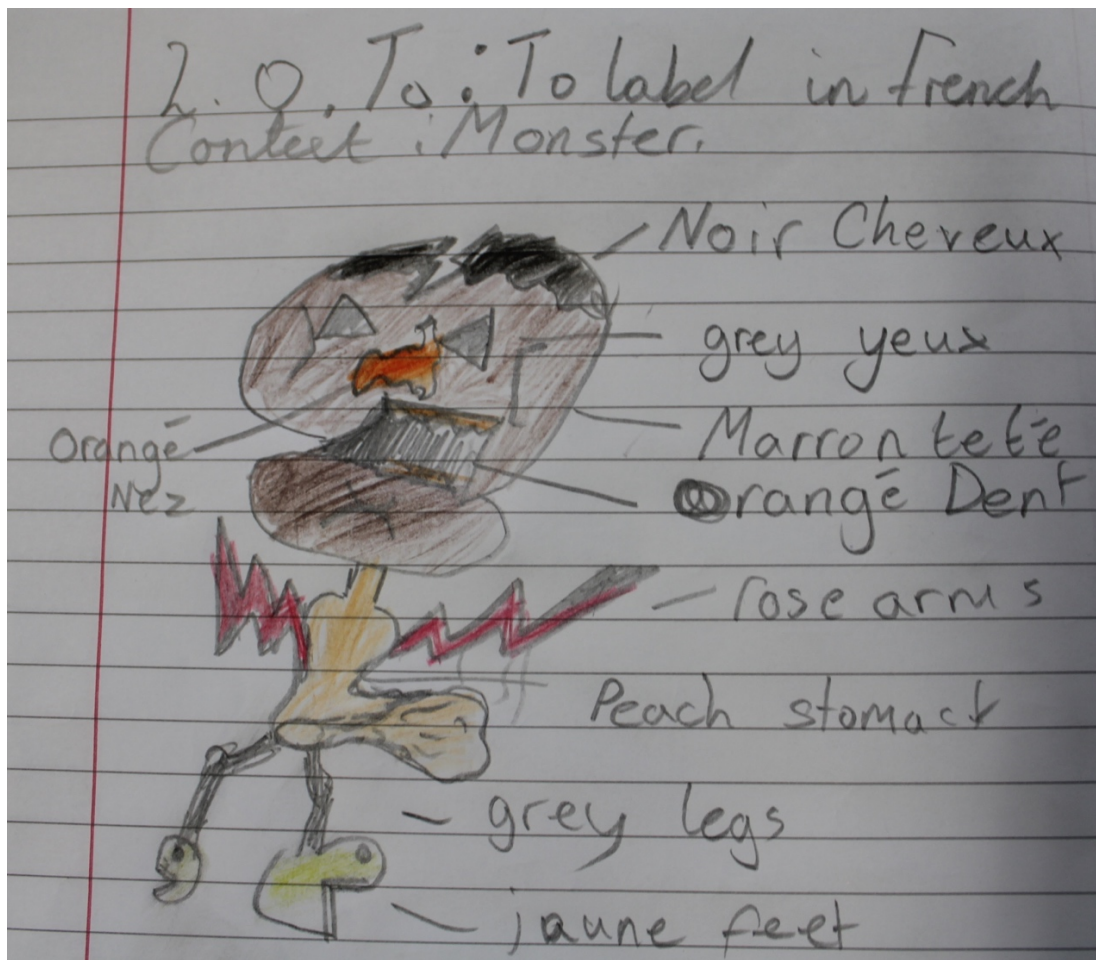 L.O.To: To label in french
Context: Monster.
Noir Cheveux
grey yeux
Marron teté
Orangé Dent
Orangé
Nez
rose arms
Peach stomack
grey legs
jaune feet